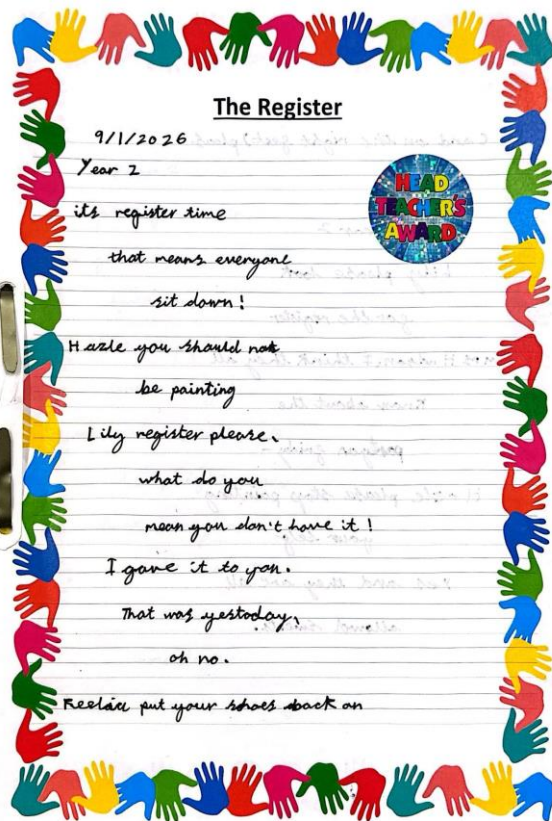 The Register
9/1/2026
Year 2
HEAD
TEACHER'S
AWARD
its register time
that means everyone
sit down!
Hazle you should not
be painting
Lily register please.
what do you
mean you don't have it!
I gave it to you.
That was yestoday.
oh no.
put your shoes back on